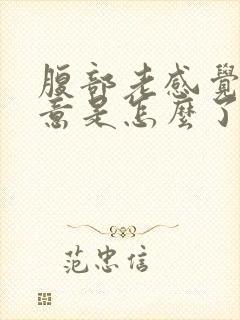 腹部老感覺
意是怎麼了
范忠信